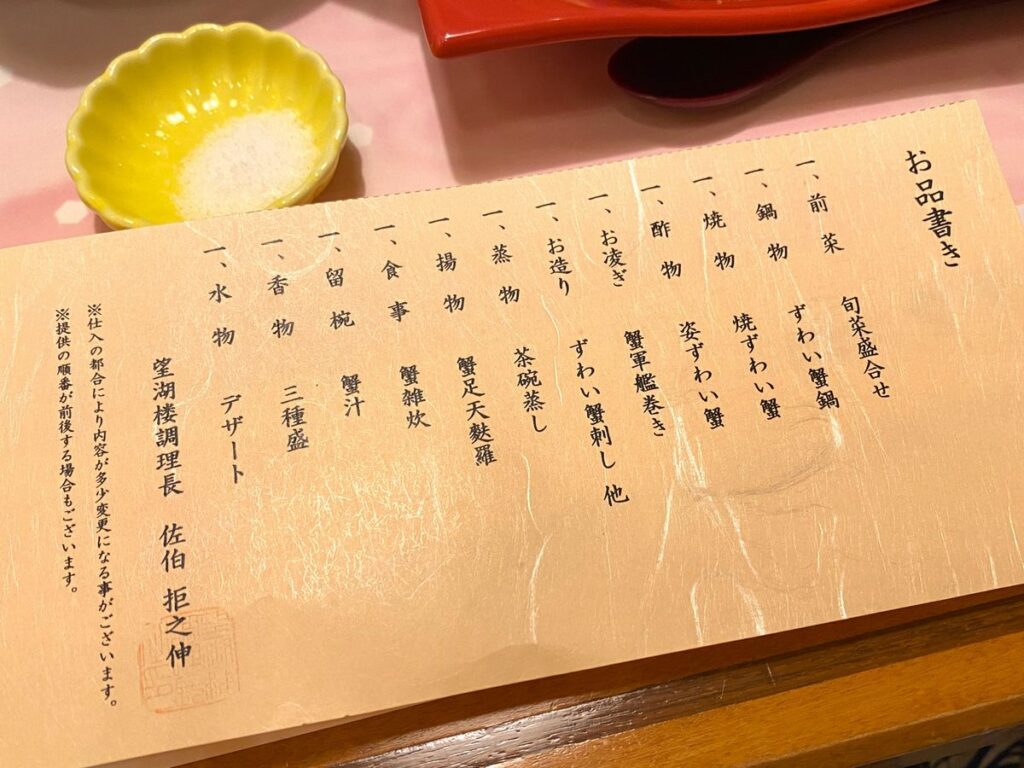 お品書き
一、前菜 旬菜盛合せ
一、鍋物 ずわい蟹鍋
一、焼物 焼ずわい蟹
一、酢物 姿ずわい蟹
一、お凌ぎ 蟹軍艦巻き
一、お造り ずわい蟹刺し 他
一、蒸物 茶碗蒸し
一、揚物 蟹足天麩羅
一、食事 蟹雑炊
一、留椀 蟹汁
一、香物 三種盛
一、水物 デザート
望湖楼調理長 佐伯 拒之伸
※仕入の都合により内容が多少変更になる事がございます。
※提供の順番が前後する場合もございます。